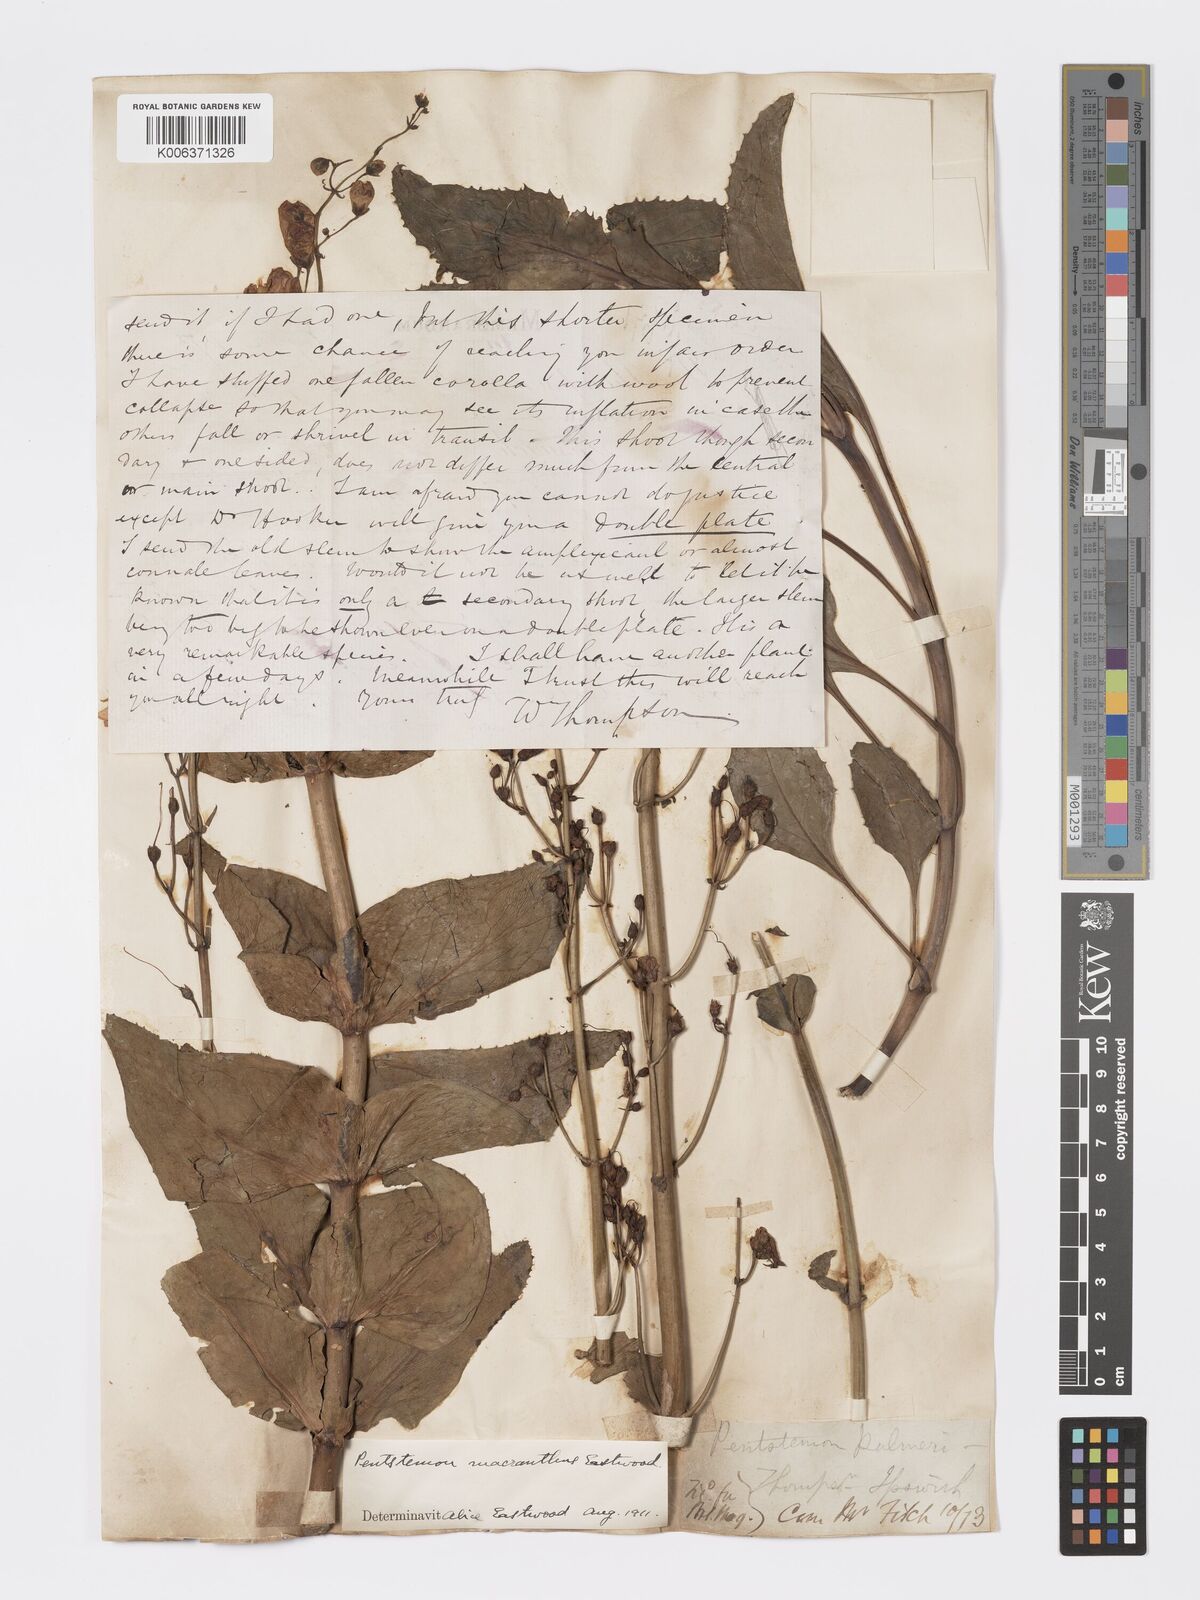 ROYAL BOTANIC GARDENS KEW
K006371326
send it if I had one, but this shorter specimen
there is some chance of reaching you in fair order
I have stuffed one fallen corolla with wool to prevent
collapse so that you may see its inflation in case the
others fall or shrivel in transit - This shoot though secon
dary & one sided, does not differ much from the central
or main shoot. I am afraid you cannot do justice
except Dr Hooker will give you a double plate
I send the old stem to show the amplexicaul or almost
connate leaves. Would it not be as well to let it be
known that it is only a secondary shoot, the larger stem
being too big to be shown even on a double plate. It is a
very remarkable species. I shall have another plant
in a few days. Meanwhile I trust this will reach
you all right. Yours truly
W Thompson
Pentstemon macranthus Eastwood.
Determinavit Alice Eastwood Aug. 1911.
Pentstemon Palmeri -
Thompson Ipswich
Bot. Mag.
Com Mr Fitch 10/73
inches
centimeters
Density
Don Williams
M001293
Kew
Royal Botanic Gardens
copyright reserved
0 1 2 3 4 5 6 7 8 9 10
cm